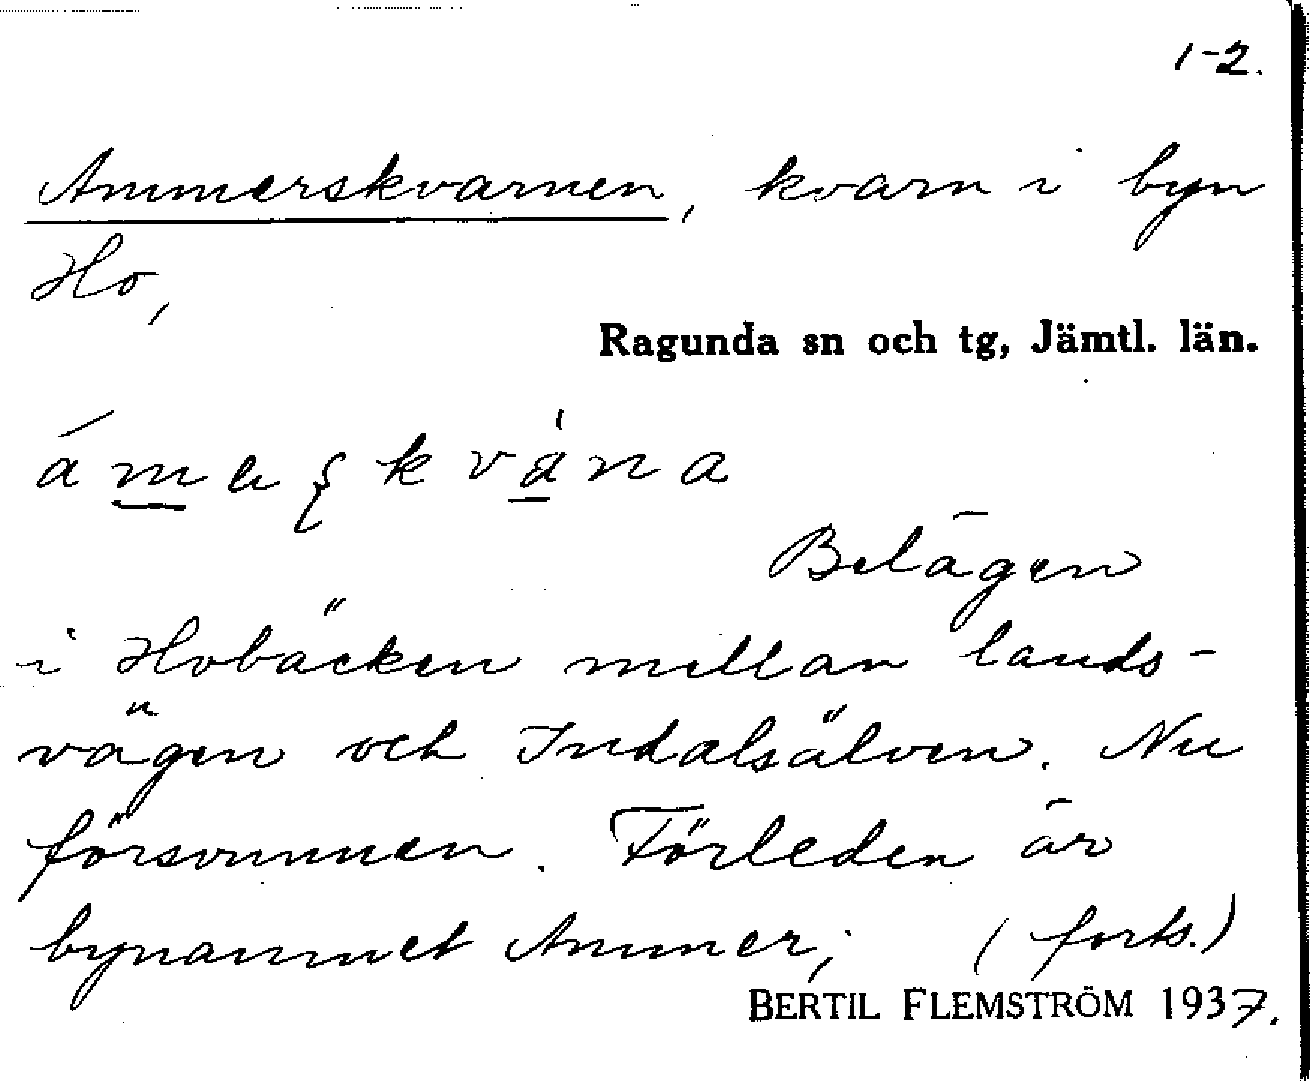 1-2.
Ammerskvarnen, kvarn i byn
Ho,
Ragunda sn och tg, Jämtl. län.
Belägen
i Hobäcken mellan lands-
vägen och Indalsälven. Nu
försvunnen. Förleden är
bynamnet Ammer; (forts.)
BERTIL FLEMSTRÖM 1937.